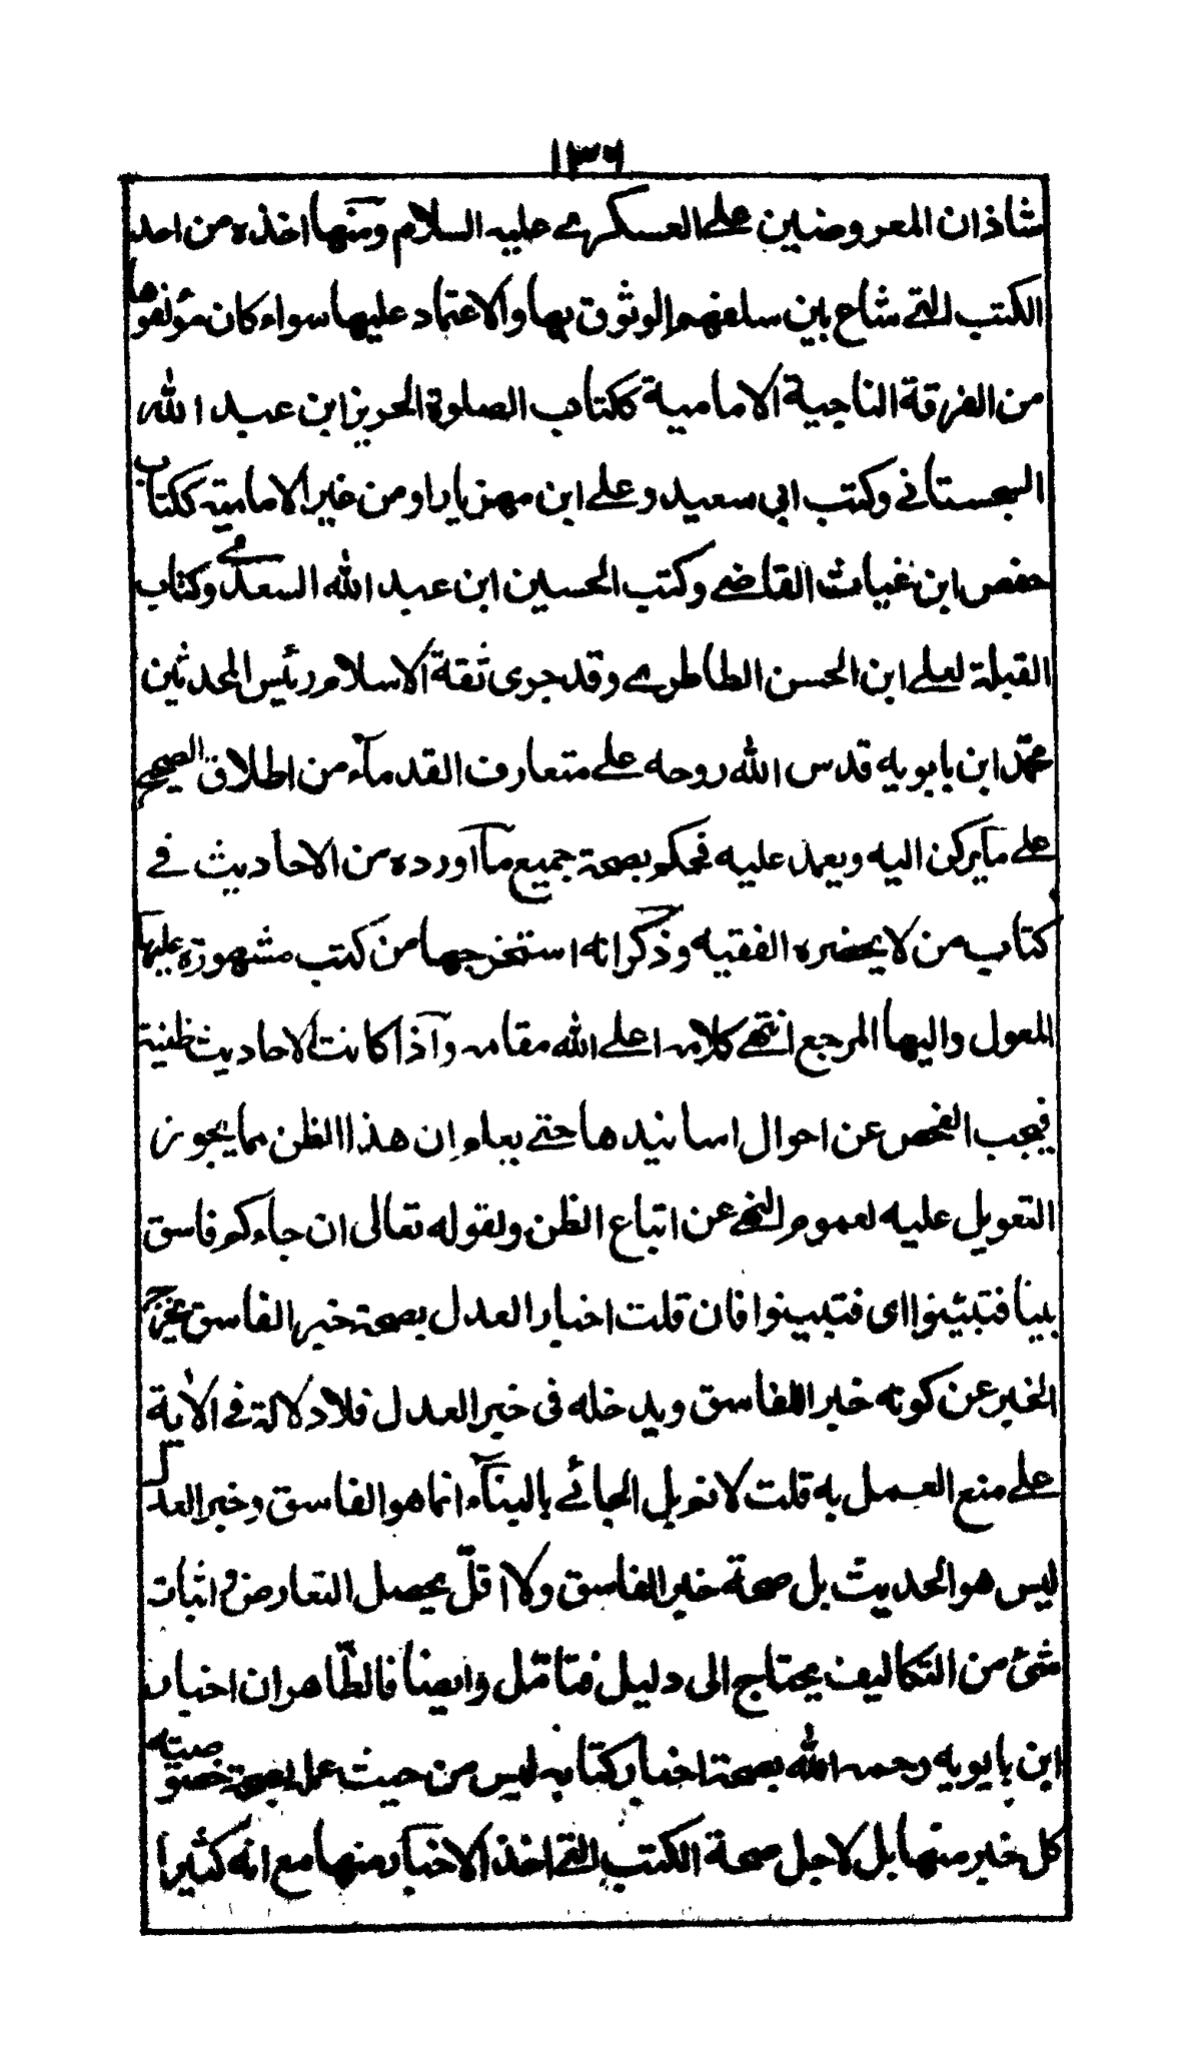 ١٣٦
شاذان المعروضين على العسكرے عليه السلام ومنها اخذه من احد
الكتب التے شاع بين سلفهم الوثوق بها والاعتماد عليها سواء كان مؤلفوها
من الفرقة الناجية الامامية ككتاب الصلوة لحريز ابن عبد الله
السجستانے وكتب ابى سعيد وعلے ابن مهزيار او من غير الامامية ككتاب
حفص ابن غياث القاضے وكتب الحسين ابن عبد الله السعدے وكتاب
القبلة لعلے ابن الحسن الطاطرے وقد جرى ثقة الاسلام رئيس المحدثين
محمّد ابن بابويه قدس الله روحه علے متعارف القدمآء من اطلاق الصحيح
علے ما يركن اليه ويعمد عليه فحكم بصحة جميع مآ اورده من الاحاديث فے
كتاب من لا يحضره الفقيه وذكر انه استخرجها من كتب مشهورة عليها
المعول واليها المرجع انتهے كلامه اعلے الله مقامه وآذا كانت الاحاديث ظنية
فيجب الفحص عن احوال اسانيدها حتے يعلم ان هذا الظن مما يجوز
التعويل عليه لعموم النهے عن اتباع الظن ولقوله تعالى ان جاءكم فاسق
بنبا فتبيّنوا اى فتبينوا فان قلت اخبار العدل بصحة خبر الفاسق يخرج
الخبر عن كونه خبر الفاسق ويدخله فى خبر العدل فلا دلالة فے الاية
علے منع العمل به قلت لا نم بل الجائے بالنبآء انما هو الفاسق وخبر العدل
ليس هو الحديث بل صحة خبر الفاسق ولا اقلّ يحصل التعارض و اثبات
شئ من التكاليف يحتاج الى دليل فتامّل وايضا فالظّاهر ان اخبار
ابن بابويه رحمه الله بصحة اخبار كتابه ليس من حيث عمل بصحة خصوصيته
كل خبر منها بل لاجل صحة الكتب التے اخذ الاخبار منها مع انه كثيرا